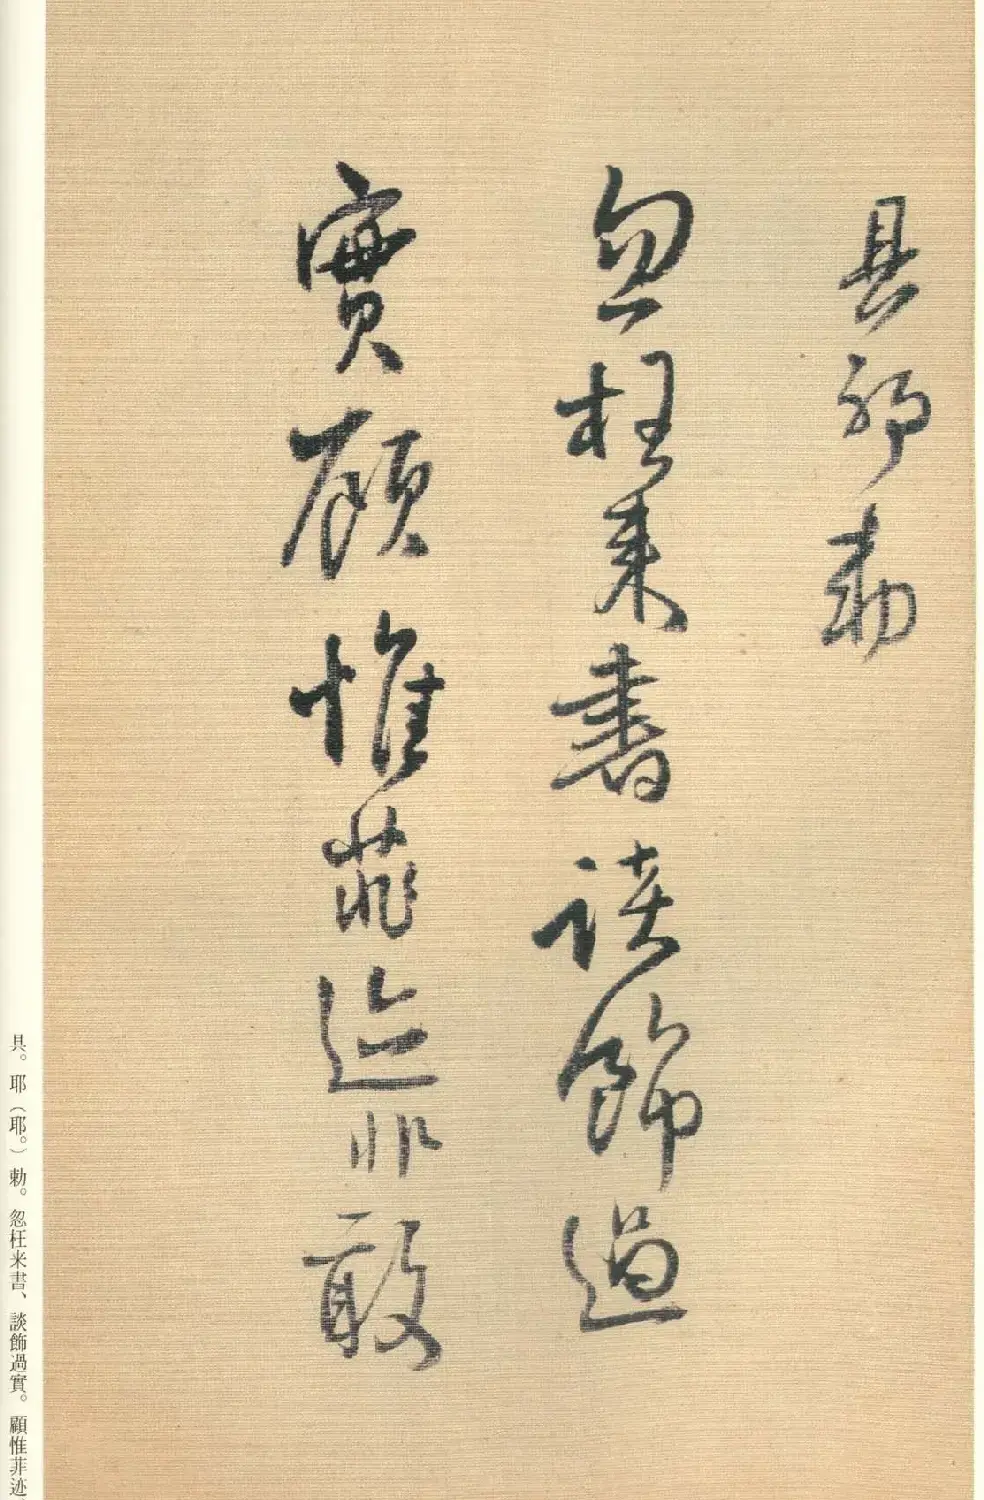 具耶勅
忽枉来書談飾過
實顧惟菲迹非敢
具。耶（耶。）勅。忽枉米書、談飾過實。顧惟菲迹